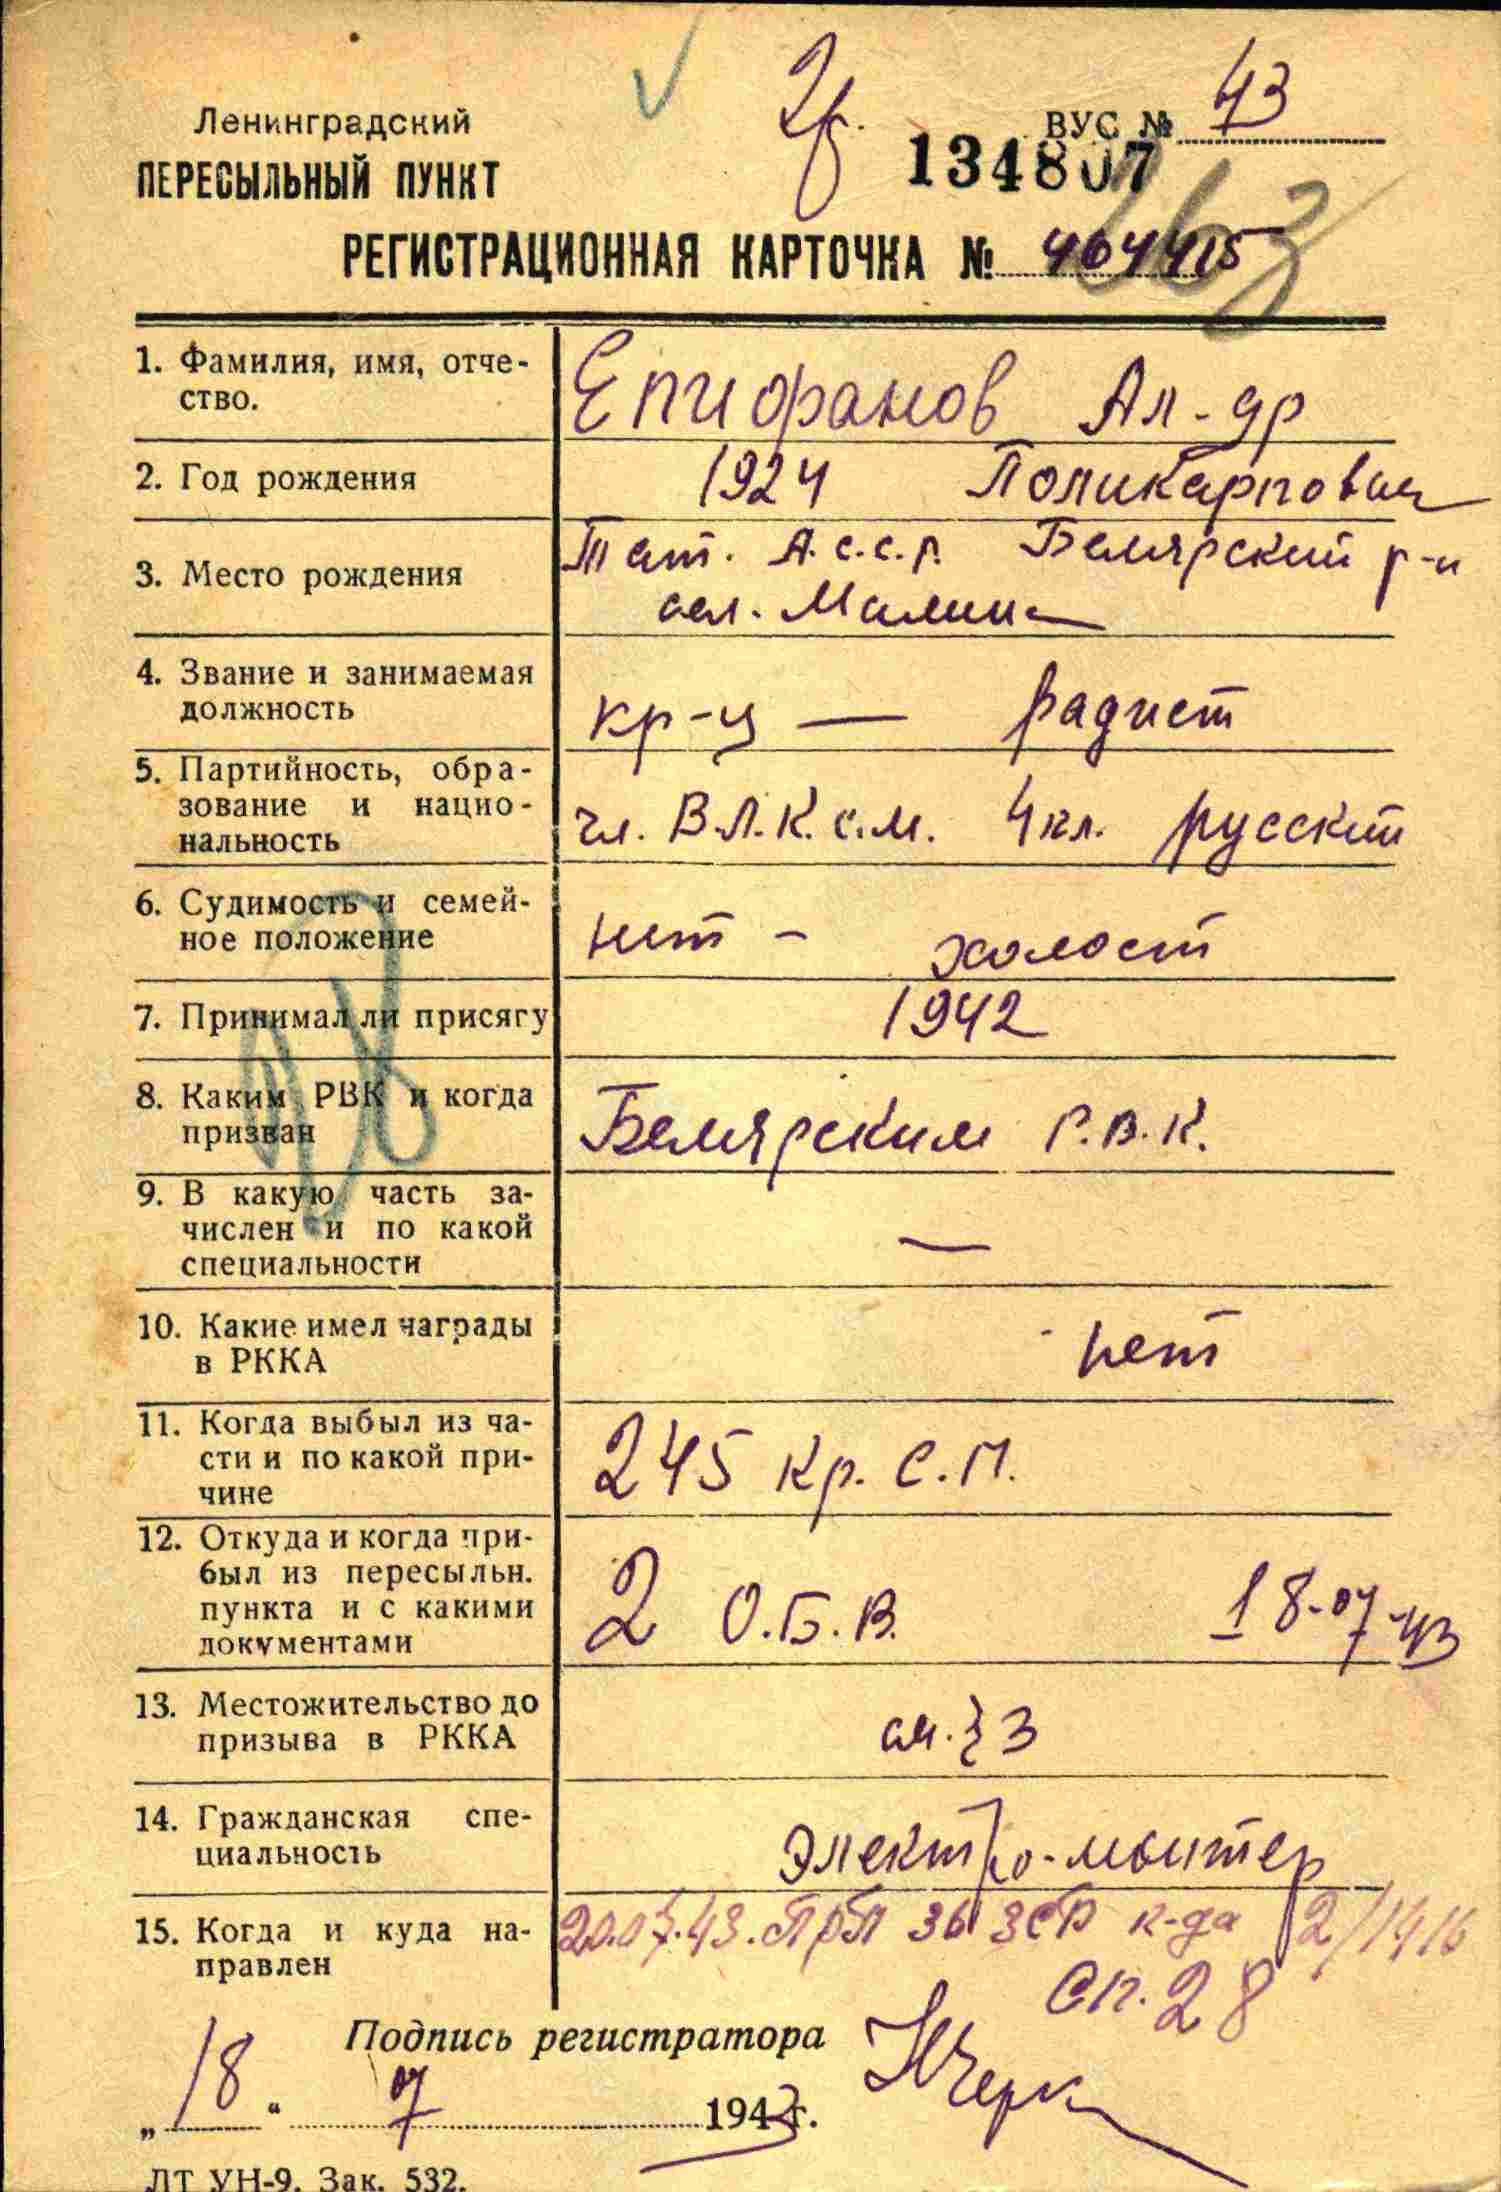 Ленинградский
ПЕРЕСЫЛЬНЫЙ ПУНКТ
ВУС № 43
134807
РЕГИСТРАЦИОННАЯ КАРТОЧКА № 464415
263
1. Фамилия, имя, отче-
ство.
Епифанов Ал-др
2. Год рождения
1924 Поликарпович
3. Место рождения
Тат. А.С.С.Р. Белярский р-н
сел. Малин
4. Звание и занимаемая
должность
кр-ц — радист
5. Партийность, обра-
зование и нацио-
нальность
чл. В.Л.К.С.М. 4 кл. русский
6. Судимость и семей-
ное положение
нет - холост
7. Принимал ли присягу
1942
8. Каким РВК и когда
призван
Белярским Р.В.К.
9. В какую часть за-
числен и по какой
специальности
—
10. Какие имел награды
в РККА
нет
11. Когда выбыл из ча-
сти и по какой при-
чине
245 кр. С.П.
12. Откуда и когда при-
был из пересыльн.
пункта и с какими
документами
2 О.Б.В. 18-07-43
13. Местожительство до
призыва в РККА
см. § 3
14. Гражданская спе-
циальность
электро-монтер
15. Когда и куда на-
правлен
20.07.43. ПРП 36 ЗСП к-да 2/1416
сп. 28
Подпись регистратора
„18“ 07 1943г.
ЛТ УН-9. Зак. 532.